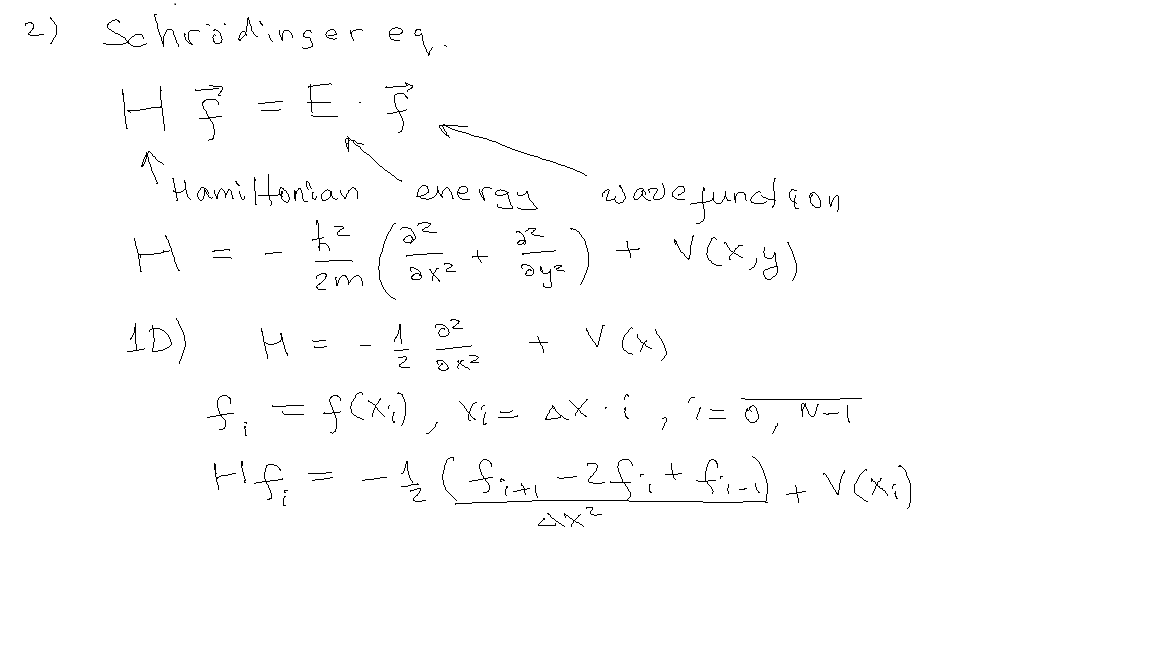 2) Schrödinger eq.
H f⃗ = E · f⃗
Hamiltonian energy wavefunction
H = - ħ²/2m (∂²/∂x² + ∂²/∂y²) + V(x,y)
1D) H = - 1/2 ∂²/∂x² + V(x)
fᵢ = f(xᵢ), xᵢ = Δx · i, i = 0, N-1
H fᵢ = - 1/2 (fᵢ₊₁ - 2fᵢ + fᵢ₋₁)/Δx² + V(xᵢ)